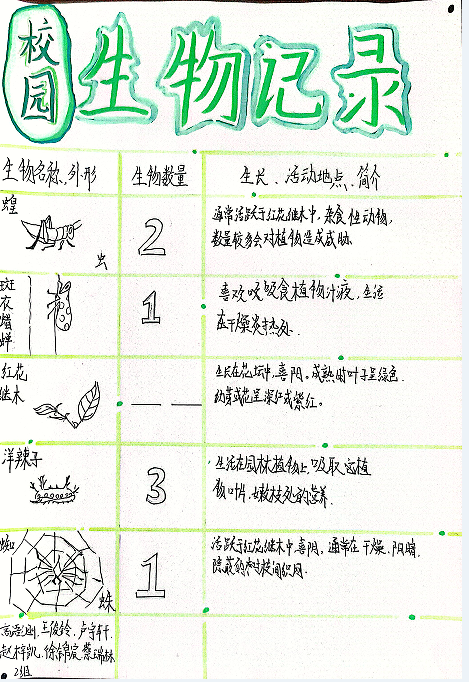 校园生物记录
生物名称、外形
生物数量
生长、活动地点、简介
蝗虫
2
通常活跃于红花继木中,杂食性动物,
数量较多会对植物造成威胁
斑衣蜡蝉
1
喜欢吸食植物汁液,生活
在干燥炎热处.
红花
继木
— —
生长在花坛中,喜阴。成熟时叶子呈绿色.
幼黄或花呈深红或紫红。
洋辣子
3
生活在园林植物上,吸取
嫩枝处的营养.
蜘蛛
1
活跃于红花继木中,喜阴,通常在干燥、阴暗、
隐蔽的树枝间织网.
王俊铃.卢宇轩.
赵梓凯.
2组